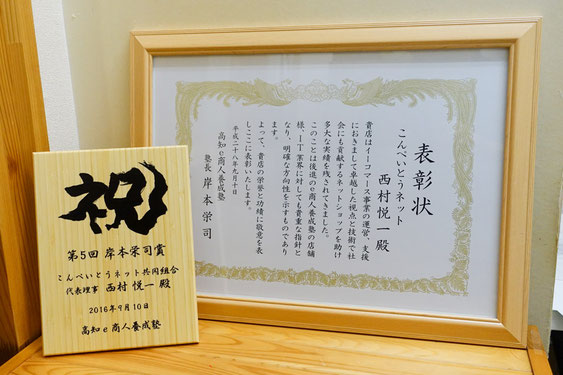 祝
第5回 岸本栄司賞
こんぺいとうネット共同組合
代表理事 西村 悦一 殿
2016年9月10日
高知e商人養成塾
表彰状
こんぺいとうネット
西村悦一殿
貴店はイーコマース事業の運営、支援
におきまして卓越した視点と技術で社
会にも貢献するネットショップを助け
多大な実績を残されてきました。
このことは後進のe商人養成塾の店舗
様、IT業界に対しても貴重な指針と
なり、明確な方向性を示すものであり
ます。
よって、貴店の栄誉と功績に敬意を表
しここに表彰いたします。
平成二十八年九月十日
高知e商人養成塾
塾長 岸本栄司